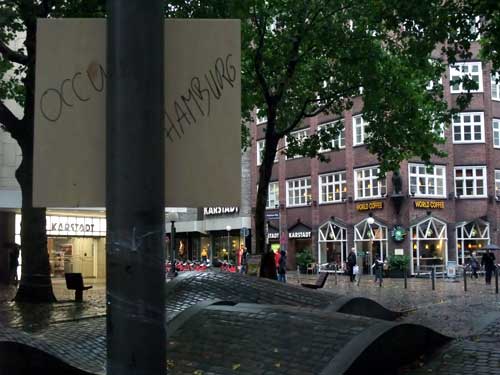 OCCU HAMBURG
KARSTADT
KARSTADT
KARSTADT
WORLD COFFEE WORLD COFFEE